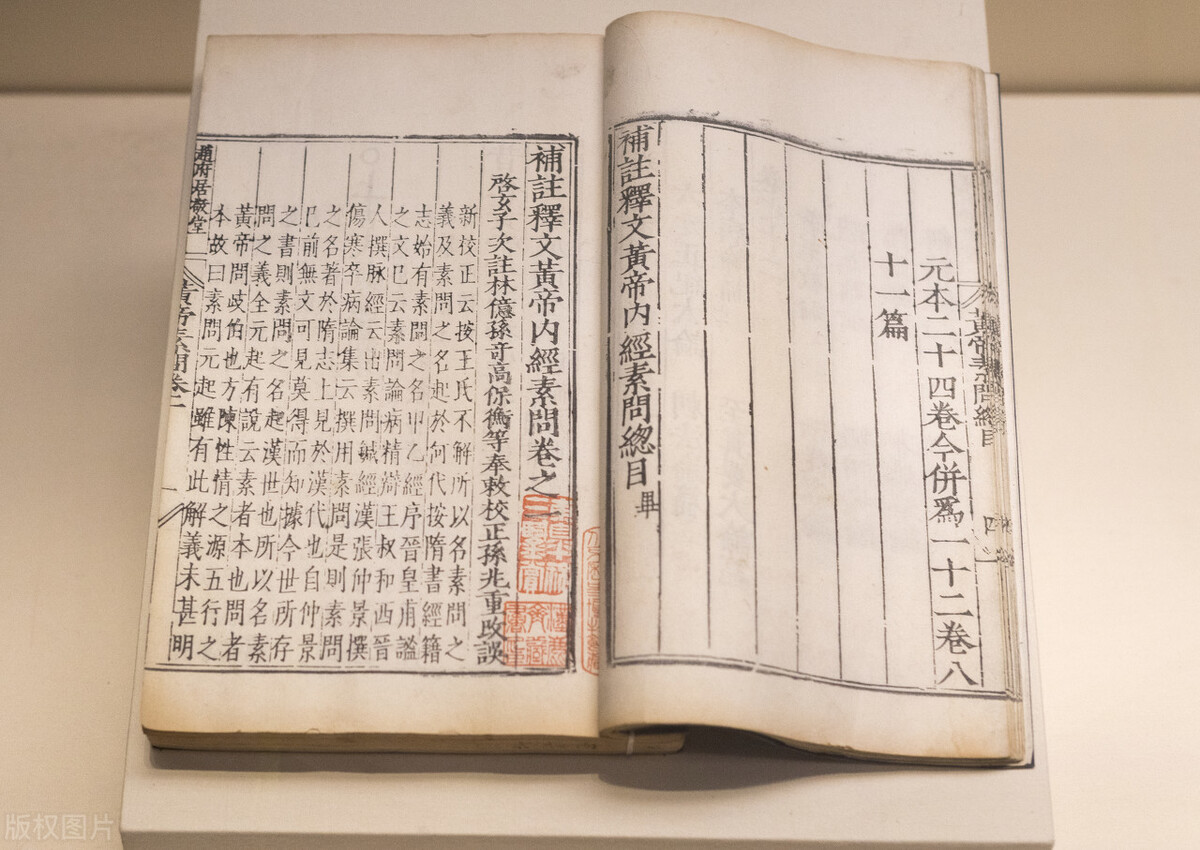 黃帝素問總目
四
元本二十四卷今併爲一十二卷八
十一篇
補註釋文黃帝內經素問總目畢
補註釋文黃帝內經素問卷之一
啓玄子次註林億孫奇高保衡等奉敕校正孫兆重改誤
新校正云按王氏不解所以名素問之
義及素問之名起於何代按隋書經籍
志始有素問之名甲乙經序晉皇甫謐
之文已云素問論病精辯王叔和西晉
人撰脉經云出素問鍼經漢張仲景撰
傷寒卒病論集云撰用素問是則素問
之名著於隋志上見於漢代也自仲景
已前無文可見莫得而知據今世所存
之書則素問之名起漢世也所以名素
問之義全元起有說云素者本也問者
黃帝問歧伯也方陳性情之源五行之
本故曰素問元起雖有此解義未甚明
趙府居敬堂
黃帝素問卷一
版权图片